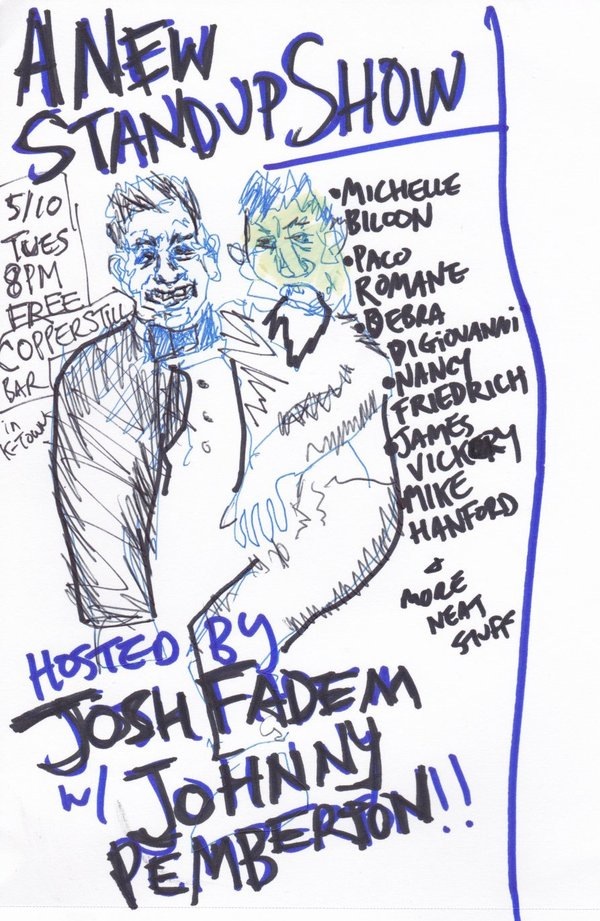 A NEW
STANDUP SHOW
5/10
TUES
8PM
FREE
COPPERSTILL
BAR
in
K-TOWN
• MICHELLE
BILOON
• PACO
ROMANE
• DEBRA
DIGIOVANNI
• NANCY
FRIEDRICH
• JAMES
VICKERY
MIKE
HANFORD
+
MORE
NEAT
STUFF
HOSTED BY
JOSH FADEM
w/ JOHNNY
PEMBERTON!!